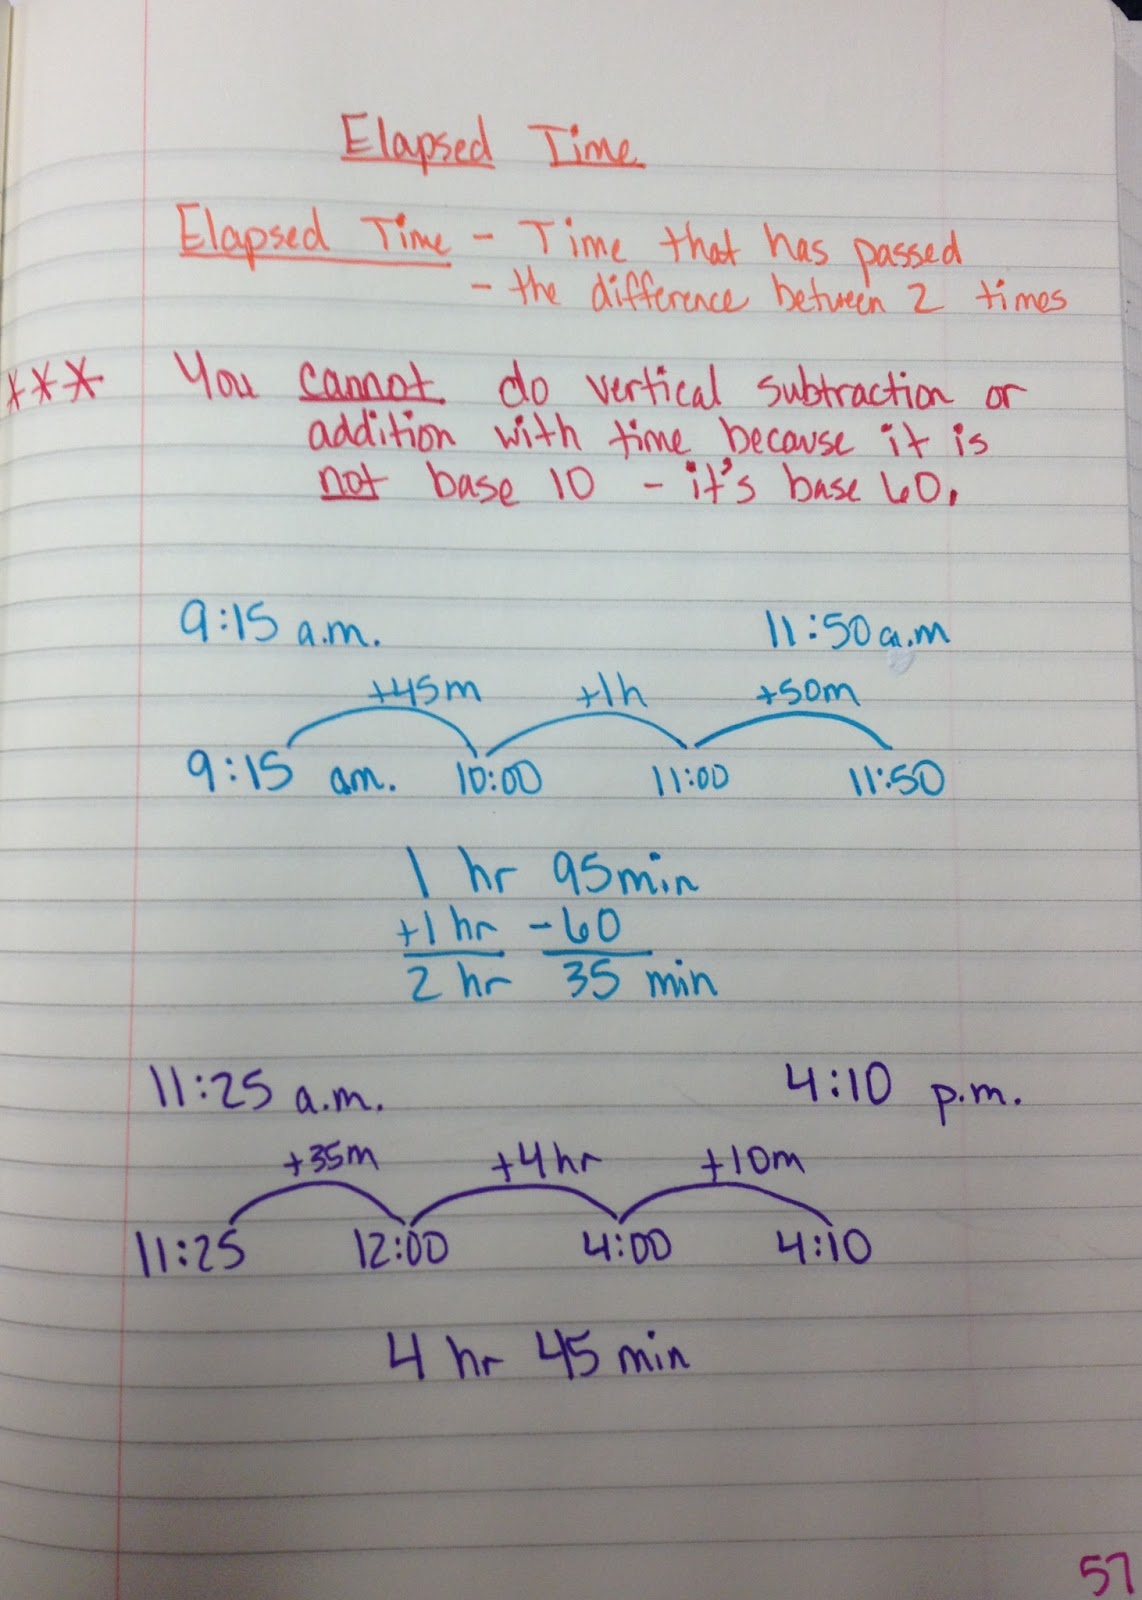 Elapsed Time
Elapsed Time - Time that has passed
- the difference between 2 times
*** You cannot do vertical subtraction or
addition with time because it is
not base 10 - it's base 60.
9:15 a.m. 11:50 a.m
+45m +1h +50m
9:15 am. 10:00 11:00 11:50
1 hr 95min
+1 hr -60
2 hr 35 min
11:25 a.m. 4:10 p.m.
+35m +4hr +10m
11:25 12:00 4:00 4:10
4 hr 45 min
57